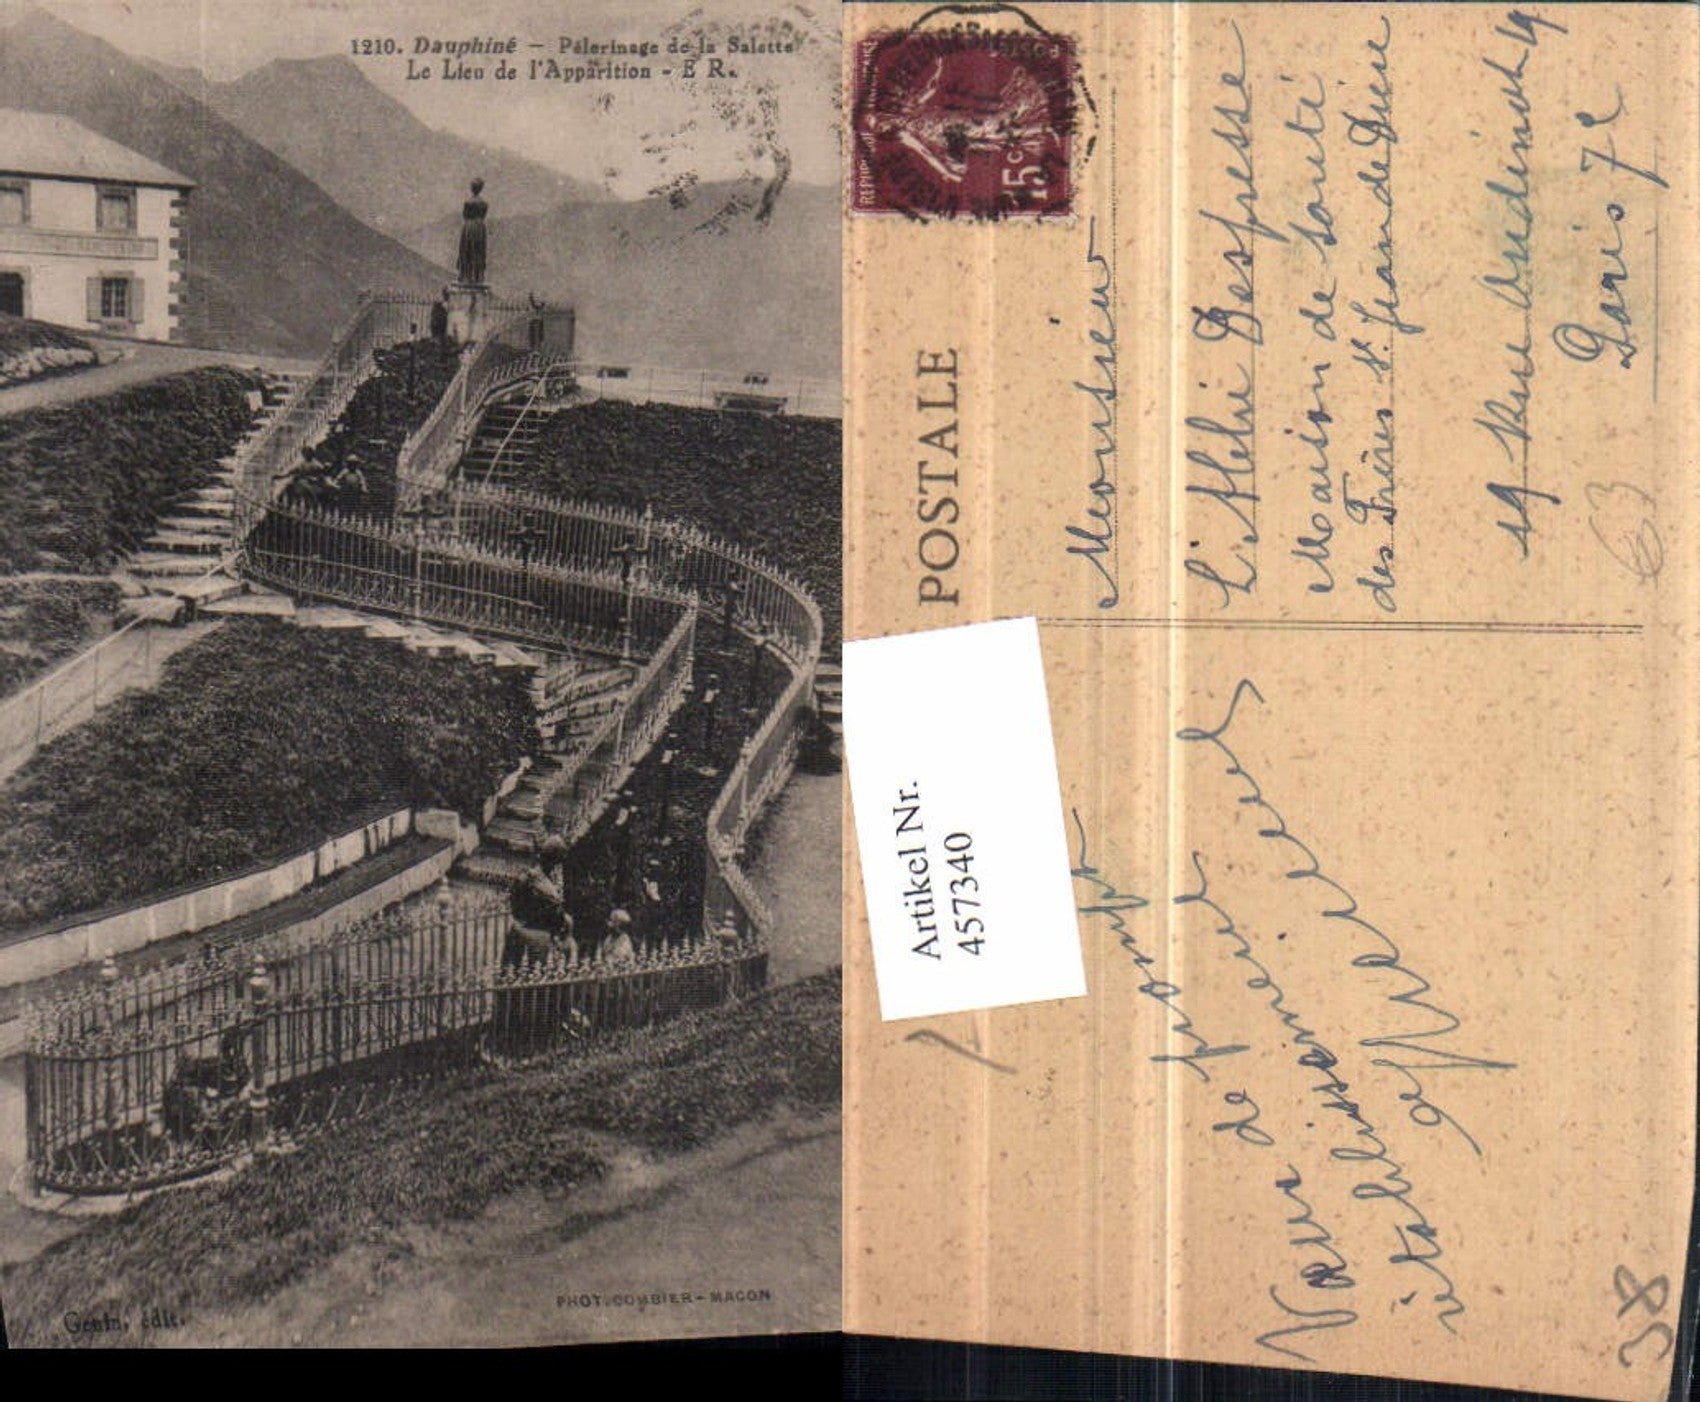 1210. Dauphiné – Pèlerinage de la Salette
Le Lieu de l'Apparition - E R.
Genin, édit.
PHOT. COMBIER - MACON
POSTALE
15c
Monsieur
L'Abbé Desfresse
Maison de santé
des Frères St. Jean de Dieu
19 Rue Oudinot 19
Paris 7e
63
Artikel Nr.
457340
Vœux de prompt
38